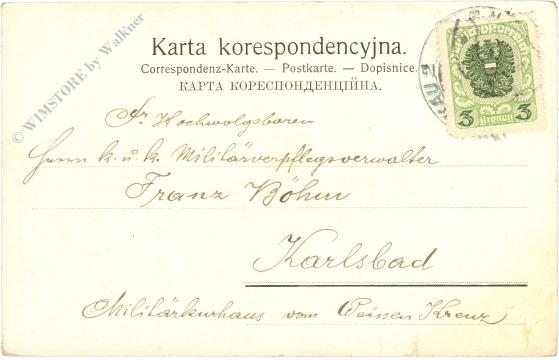 Karta korespondencyjna.
Correspondenz-Karte. — Postkarte. — Dopisnice.
КАРТА КОРЕСПОНДЕНЦІЙНА.
© WIMSTORE by Walkner
3 Kronen 3
Sr. Hochwolgeboren
Herrn k. u. k. Militärverpflegsverwalter
Franz Böhm
Karlsbad
Militärkurhaus vom Weissen Kreuz